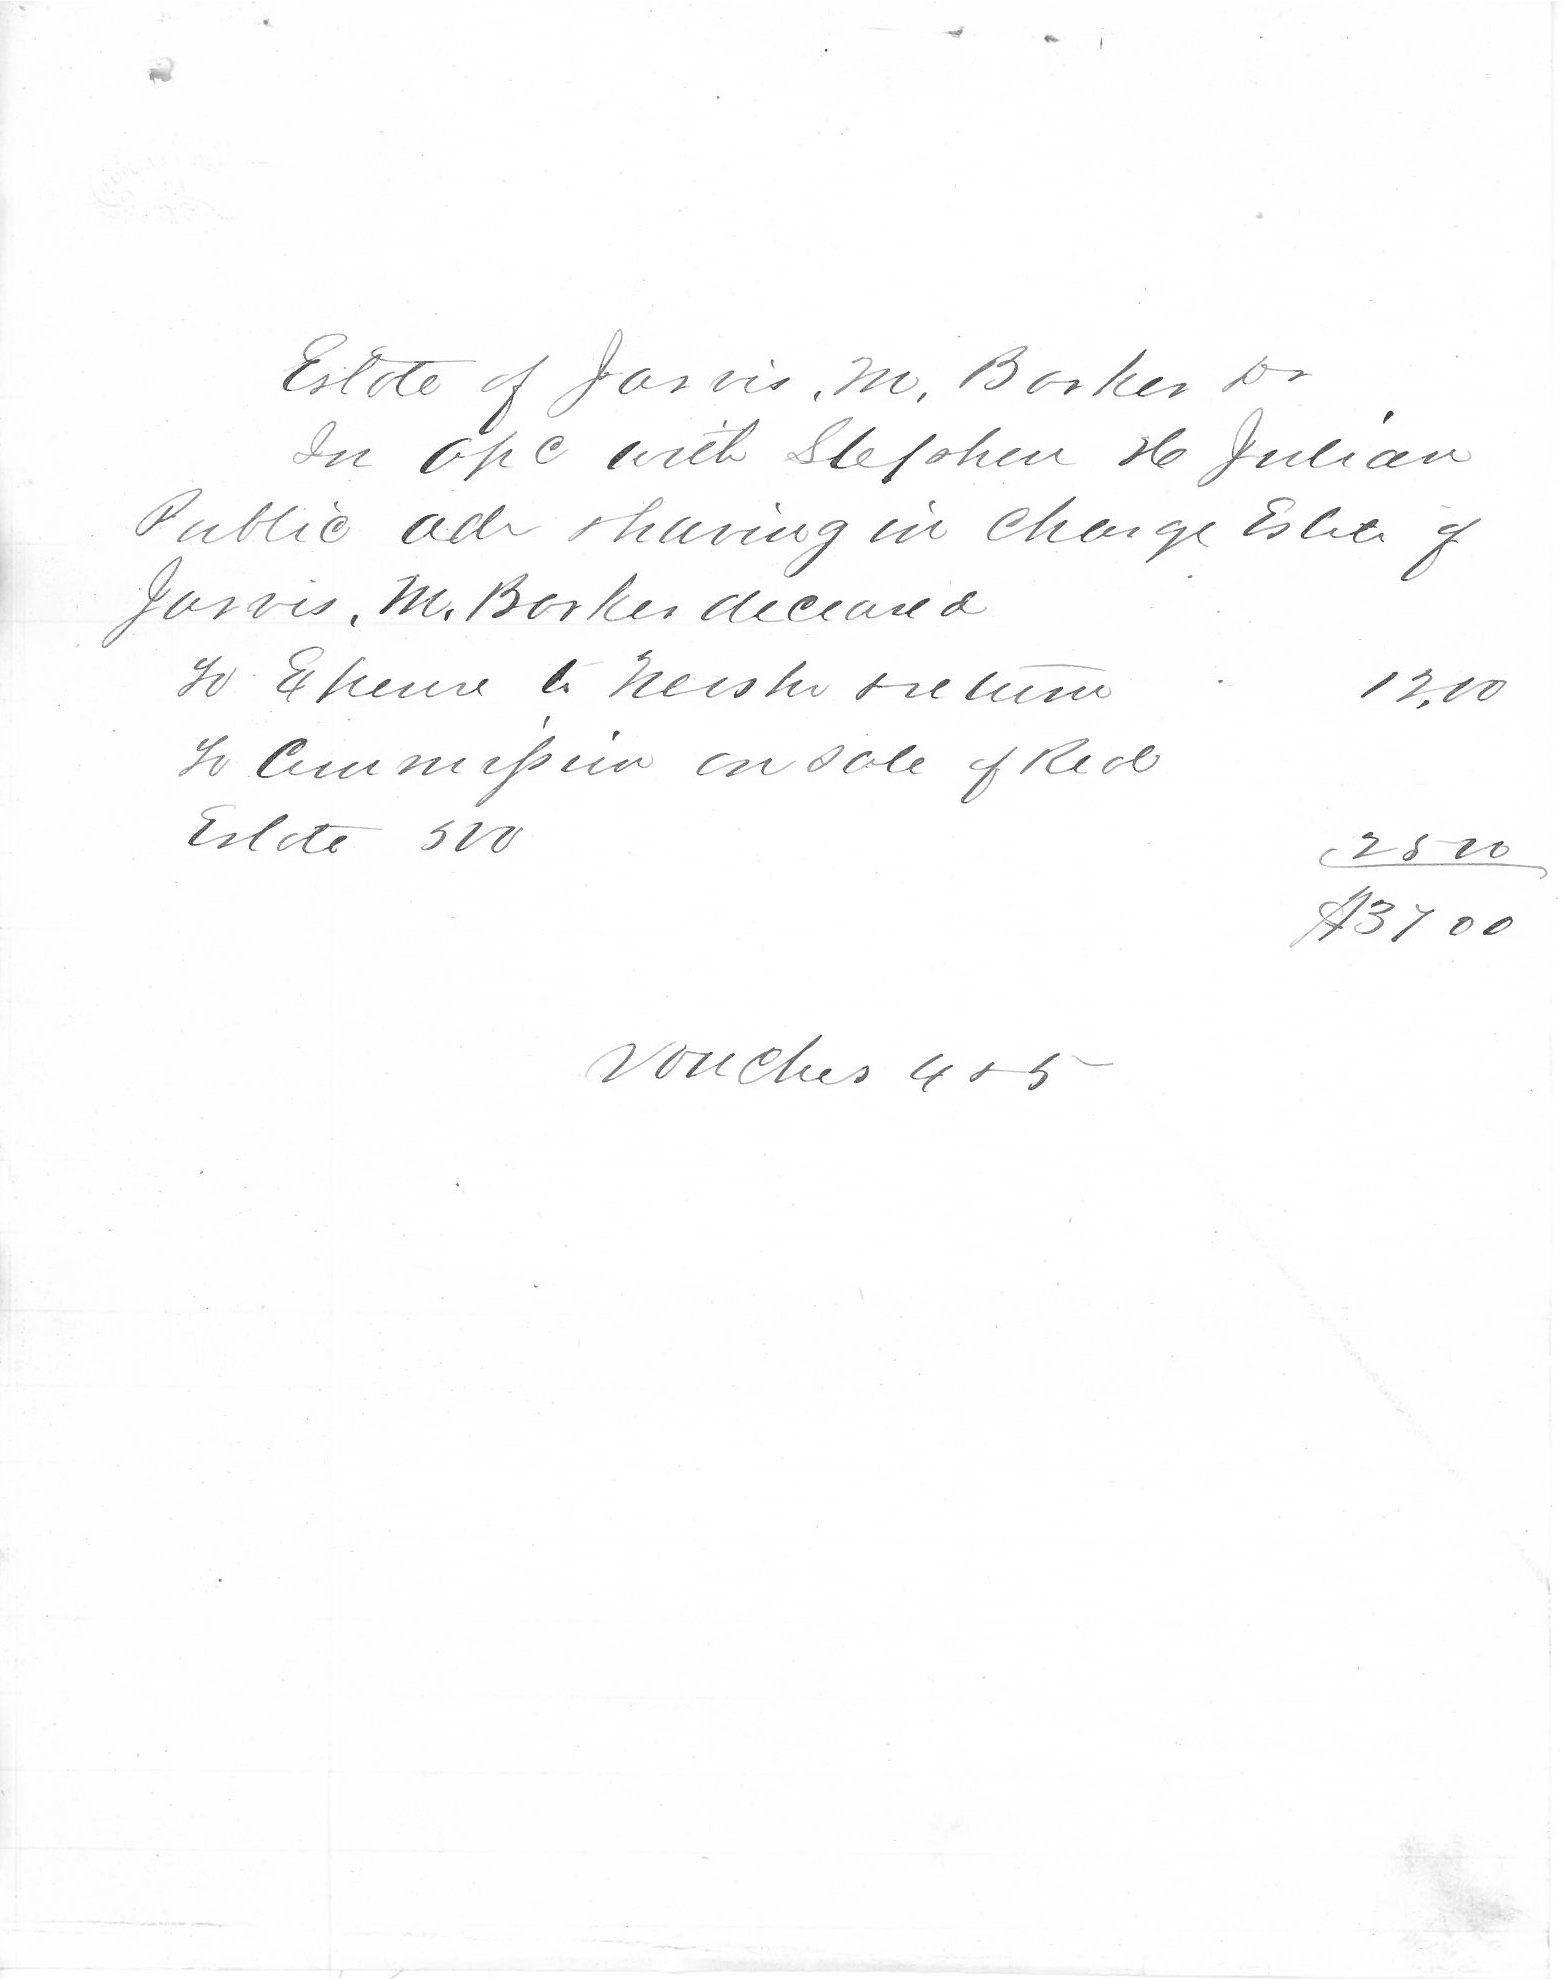 Estate of Jarvis. M. Barker Dr
In a/c with Stephen H Julian
Public adr & having in charge Estate of
Jarvis. M. Barker deceased
To Expense to Neosho & return 12.00
To Commission on sale of Real
Estate 500 25 00
$37 00
Voucher 4 & 5